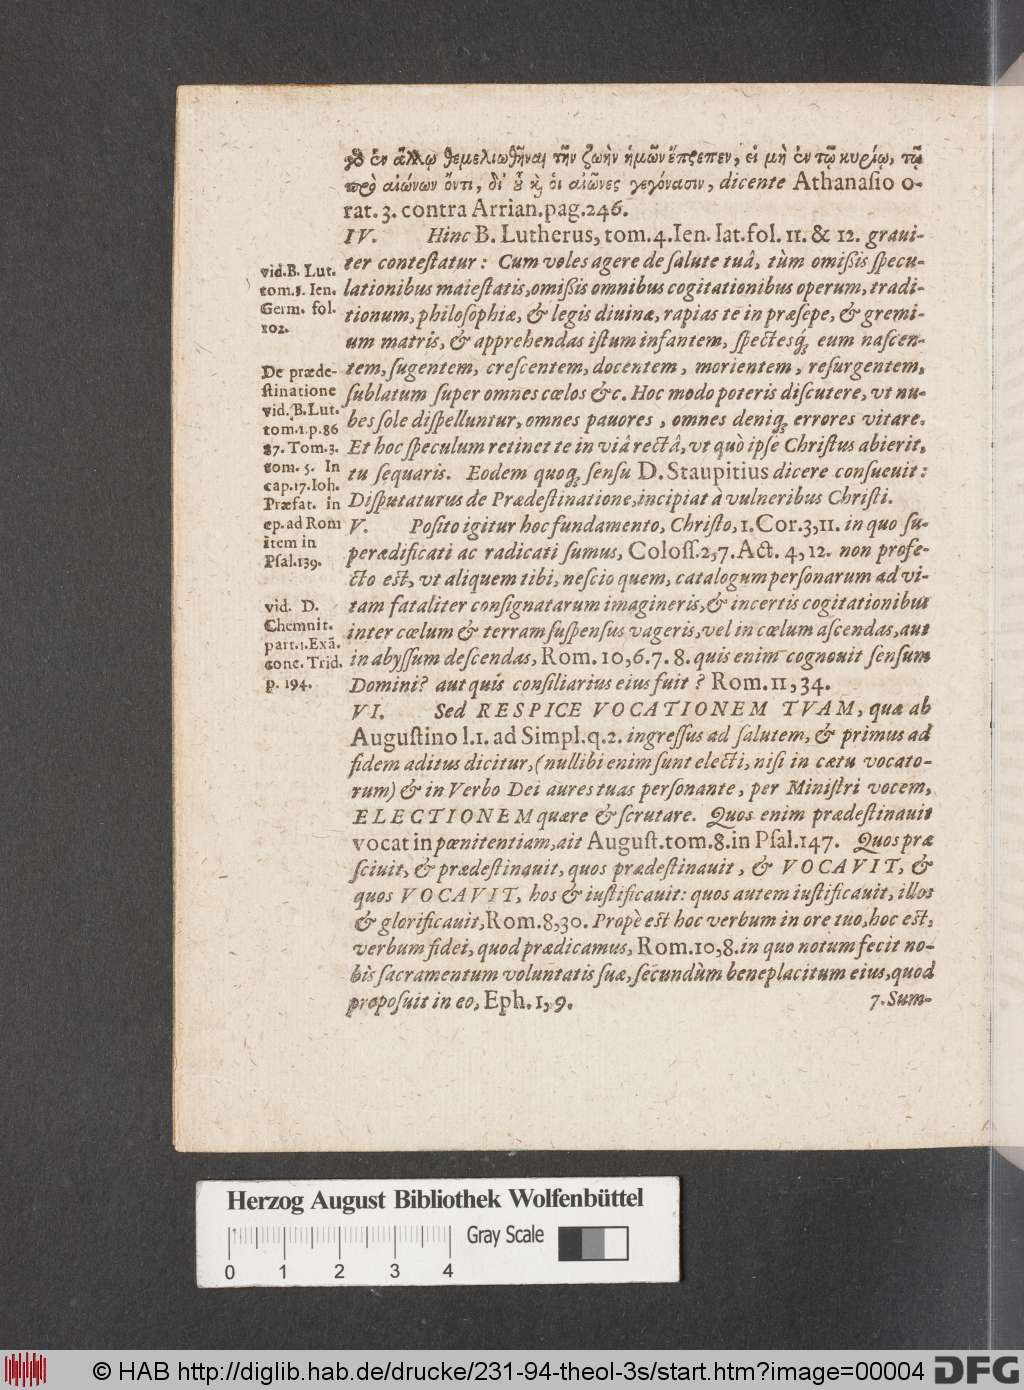 ἐν ἄλλῳ θεμελιωθῆναι τὴν ζωὴν ἡμῶν ἔπρεπεν, εἰ μὴ ἐν τῷ κυρίῳ, τῷ
πρὸ αἰώνων ὄντι, δι' οὗ κ̀ οἱ αἰῶνες γεγόνασιν, dicente Athanaſio o-
rat. 3. contra Arrian. pag. 246.
IV. Hinc B. Lutherus, tom. 4. Ien. lat. fol. 11. & 12. graui-
ter conteſtatur: Cum voles agere de ſalute tuâ, tùm omißis ſpecu-
lationibus maieſtatis, omißis omnibus cogitationibus operum, tradi-
tionum, philoſophiæ, & legis diuinæ, rapias te in præſepe, & gremi-
um matris, & apprehendas iſtum infantem, ſpectesq́; eum naſcen-
tem, ſugentem, creſcentem, docentem, morientem, reſurgentem,
ſublatum ſuper omnes cœlos &c. Hoc modo poteris diſcutere, vt nu-
bes ſole diſpelluntur, omnes pauores, omnes deniq; errores vitare.
Et hoc ſpeculum retinet te in viâ rectâ, vt quò ipſe Chriſtus abierit,
tu ſequaris. Eodem quoq; ſenſu D. Staupitius dicere conſueuit:
Diſputaturus de Prædeſtinatione, incipiat à vulneribus Chriſti.
V. Poſito igitur hoc fundamento, Chriſto, 1. Cor. 3, 11. in quo ſu-
perædificati ac radicati ſumus, Coloſſ. 2, 7. Act. 4, 12. non profe-
cto est, vt aliquem tibi, neſcio quem, catalogum perſonarum ad vi-
tam fataliter conſignatarum imagineris, & incertis cogitationibus
inter cœlum & terram ſuſpenſus vageris, vel in cœlum aſcendas, aut
in abyſſum deſcendas, Rom. 10, 6. 7. 8. quis enim cognouit ſenſum
Domini? aut quis conſiliarius eius fuit? Rom. 11, 34.
VI. Sed RESPICE VOCATIONEM TVAM, quæ ab
Auguſtino l. 1. ad Simpl. q. 2. ingreſſus ad ſalutem, & primus ad
fidem aditus dicitur, (nullibi enim ſunt electi, niſi in cætu vocato-
rum) & in Verbo Dei aures tuas perſonante, per Miniſtri vocem,
ELECTIONEM quære & ſcrutare. Quos enim prædeſtinauit
vocat in pœnitentiam, ait Auguſt. tom. 8. in Pſal. 147. Quos præ
ſciuit, & prædeſtinauit, quos prædeſtinauit, & VOCAVIT, &
quos VOCAVIT, hos & iuſtificauit: quos autem iuſtificauit, illos
& glorificauit, Rom. 8, 30. Propè est hoc verbum in ore tuo, hoc est,
verbum fidei, quod prædicamus, Rom. 10, 8. in quo notum fecit no-
bis ſacramentum voluntatis ſuæ, ſecundùm beneplacitum eius, quod
propoſuit in eo, Eph. 1, 9.
7. Sum-
vid. B. Lut.
tom. 1. Ien.
Germ. fol.
102.
De præde-
ſtinatione
vid. B. Lut.
tom. 1. p. 86
87. Tom. 3.
tom. 5. In
cap. 17. Ioh.
Præfat. in
ep. ad Rom
item in
Pſal. 139.
vid. D.
Chemnit.
part. 1. Exã.
conc. Trid.
p. 194.
Herzog August Bibliothek Wolfenbüttel
Gray Scale
0 1 2 3 4
© HAB http://diglib.hab.de/drucke/231-94-theol-3s/start.htm?image=00004
DFG